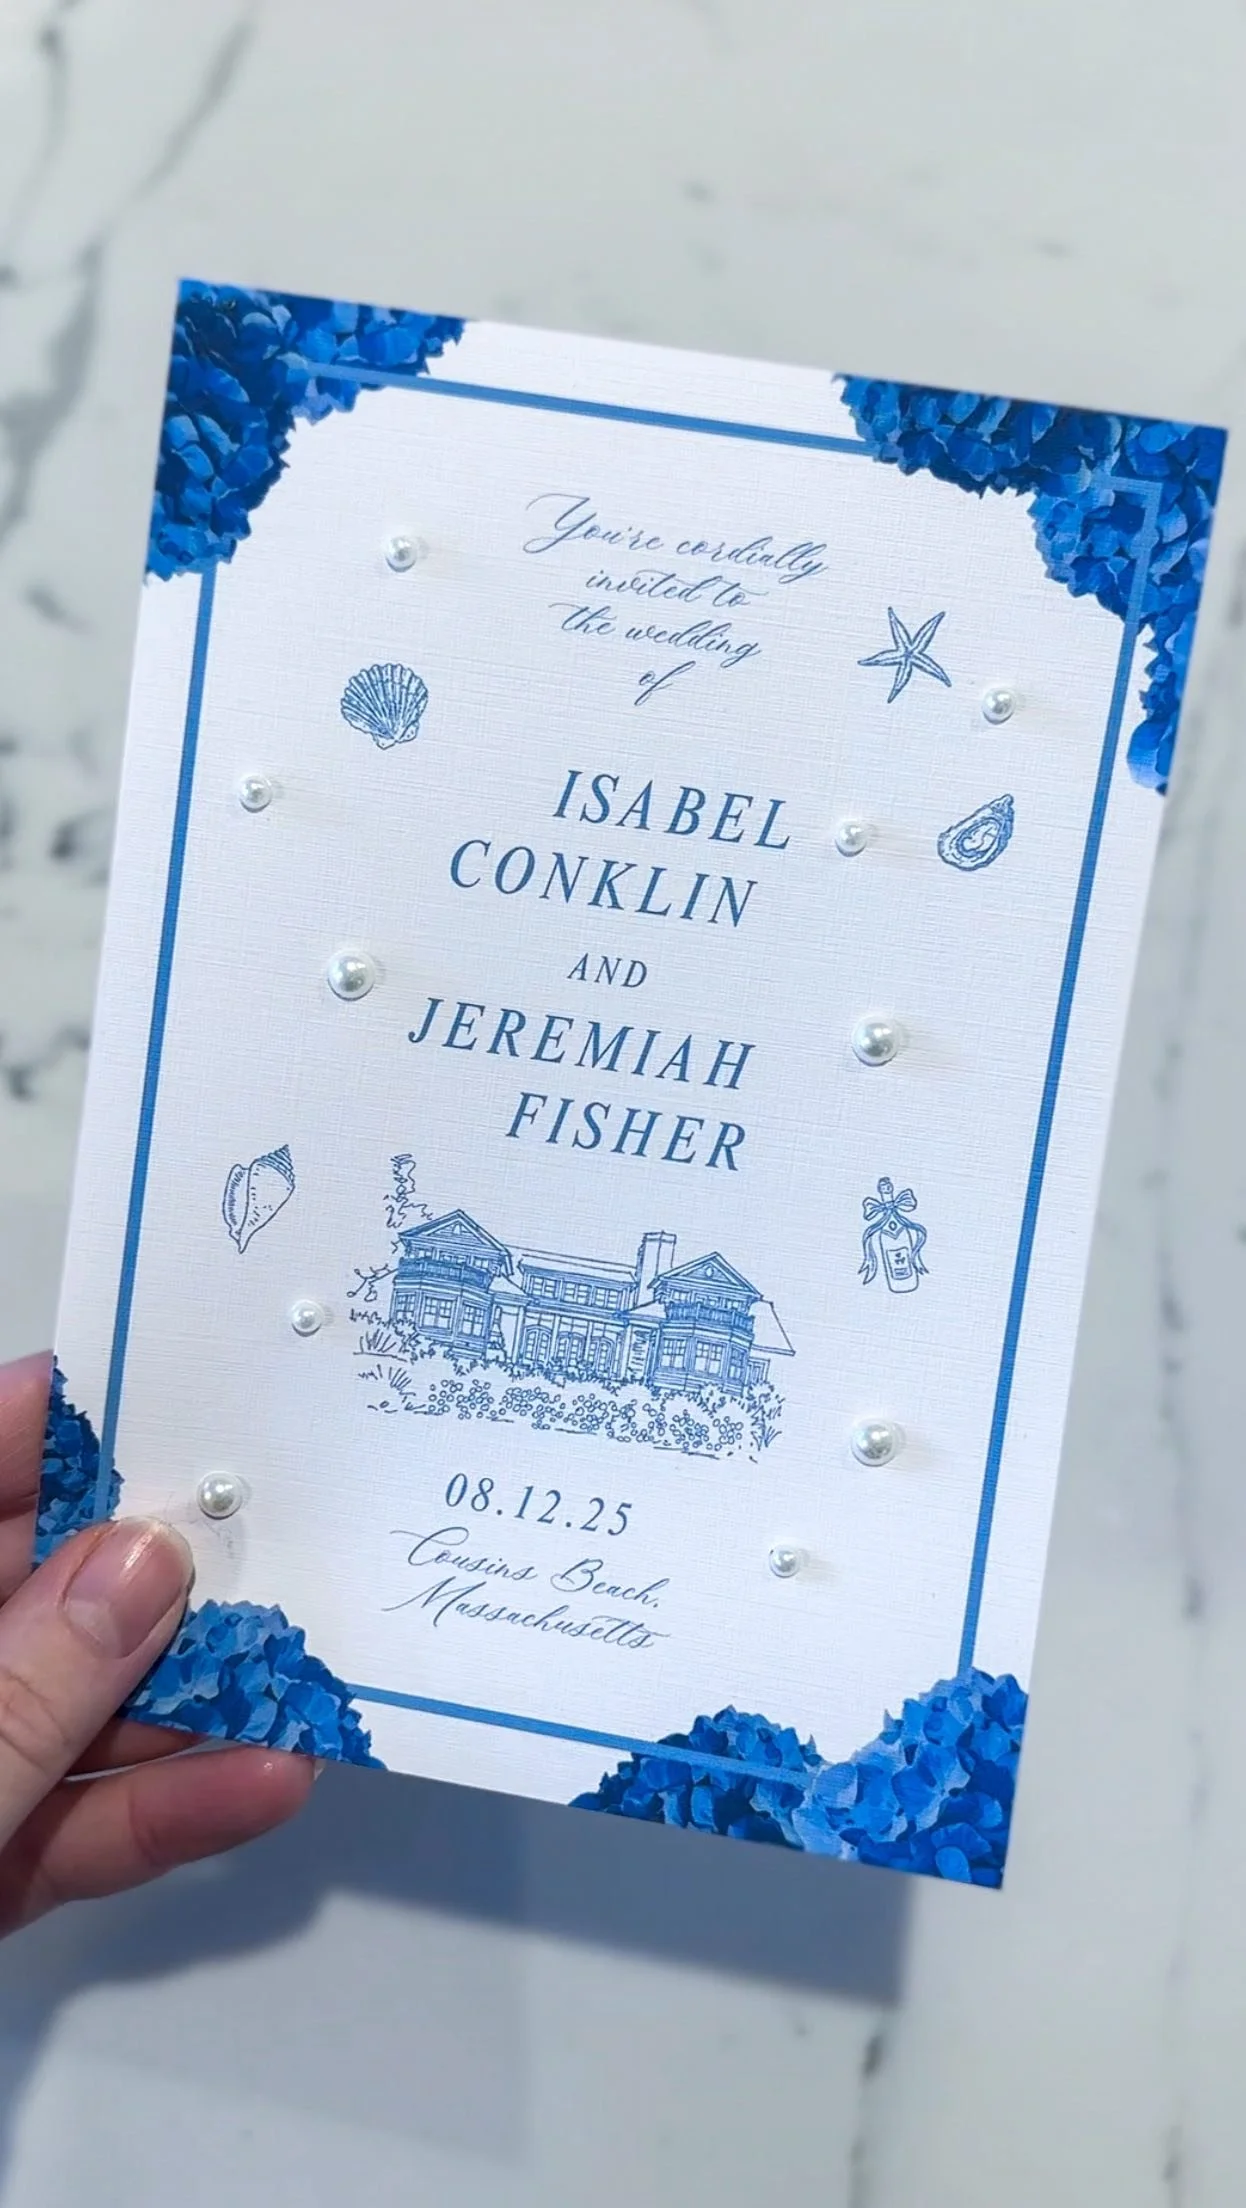 You're cordially
invited to
the wedding
of
ISABEL
CONKLIN
AND
JEREMIAH
FISHER
08.12.25
Cousins Beach,
Massachusetts